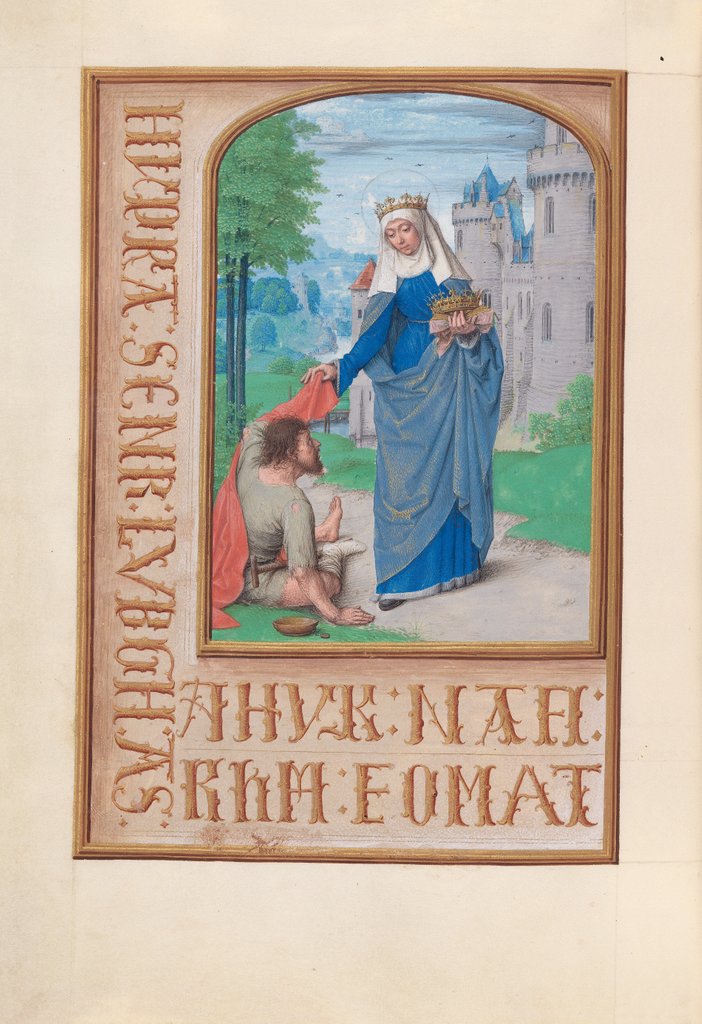 HVPRA·SENR·LVBTHAS·
AHVK:NAH:
RHM:EOMAT